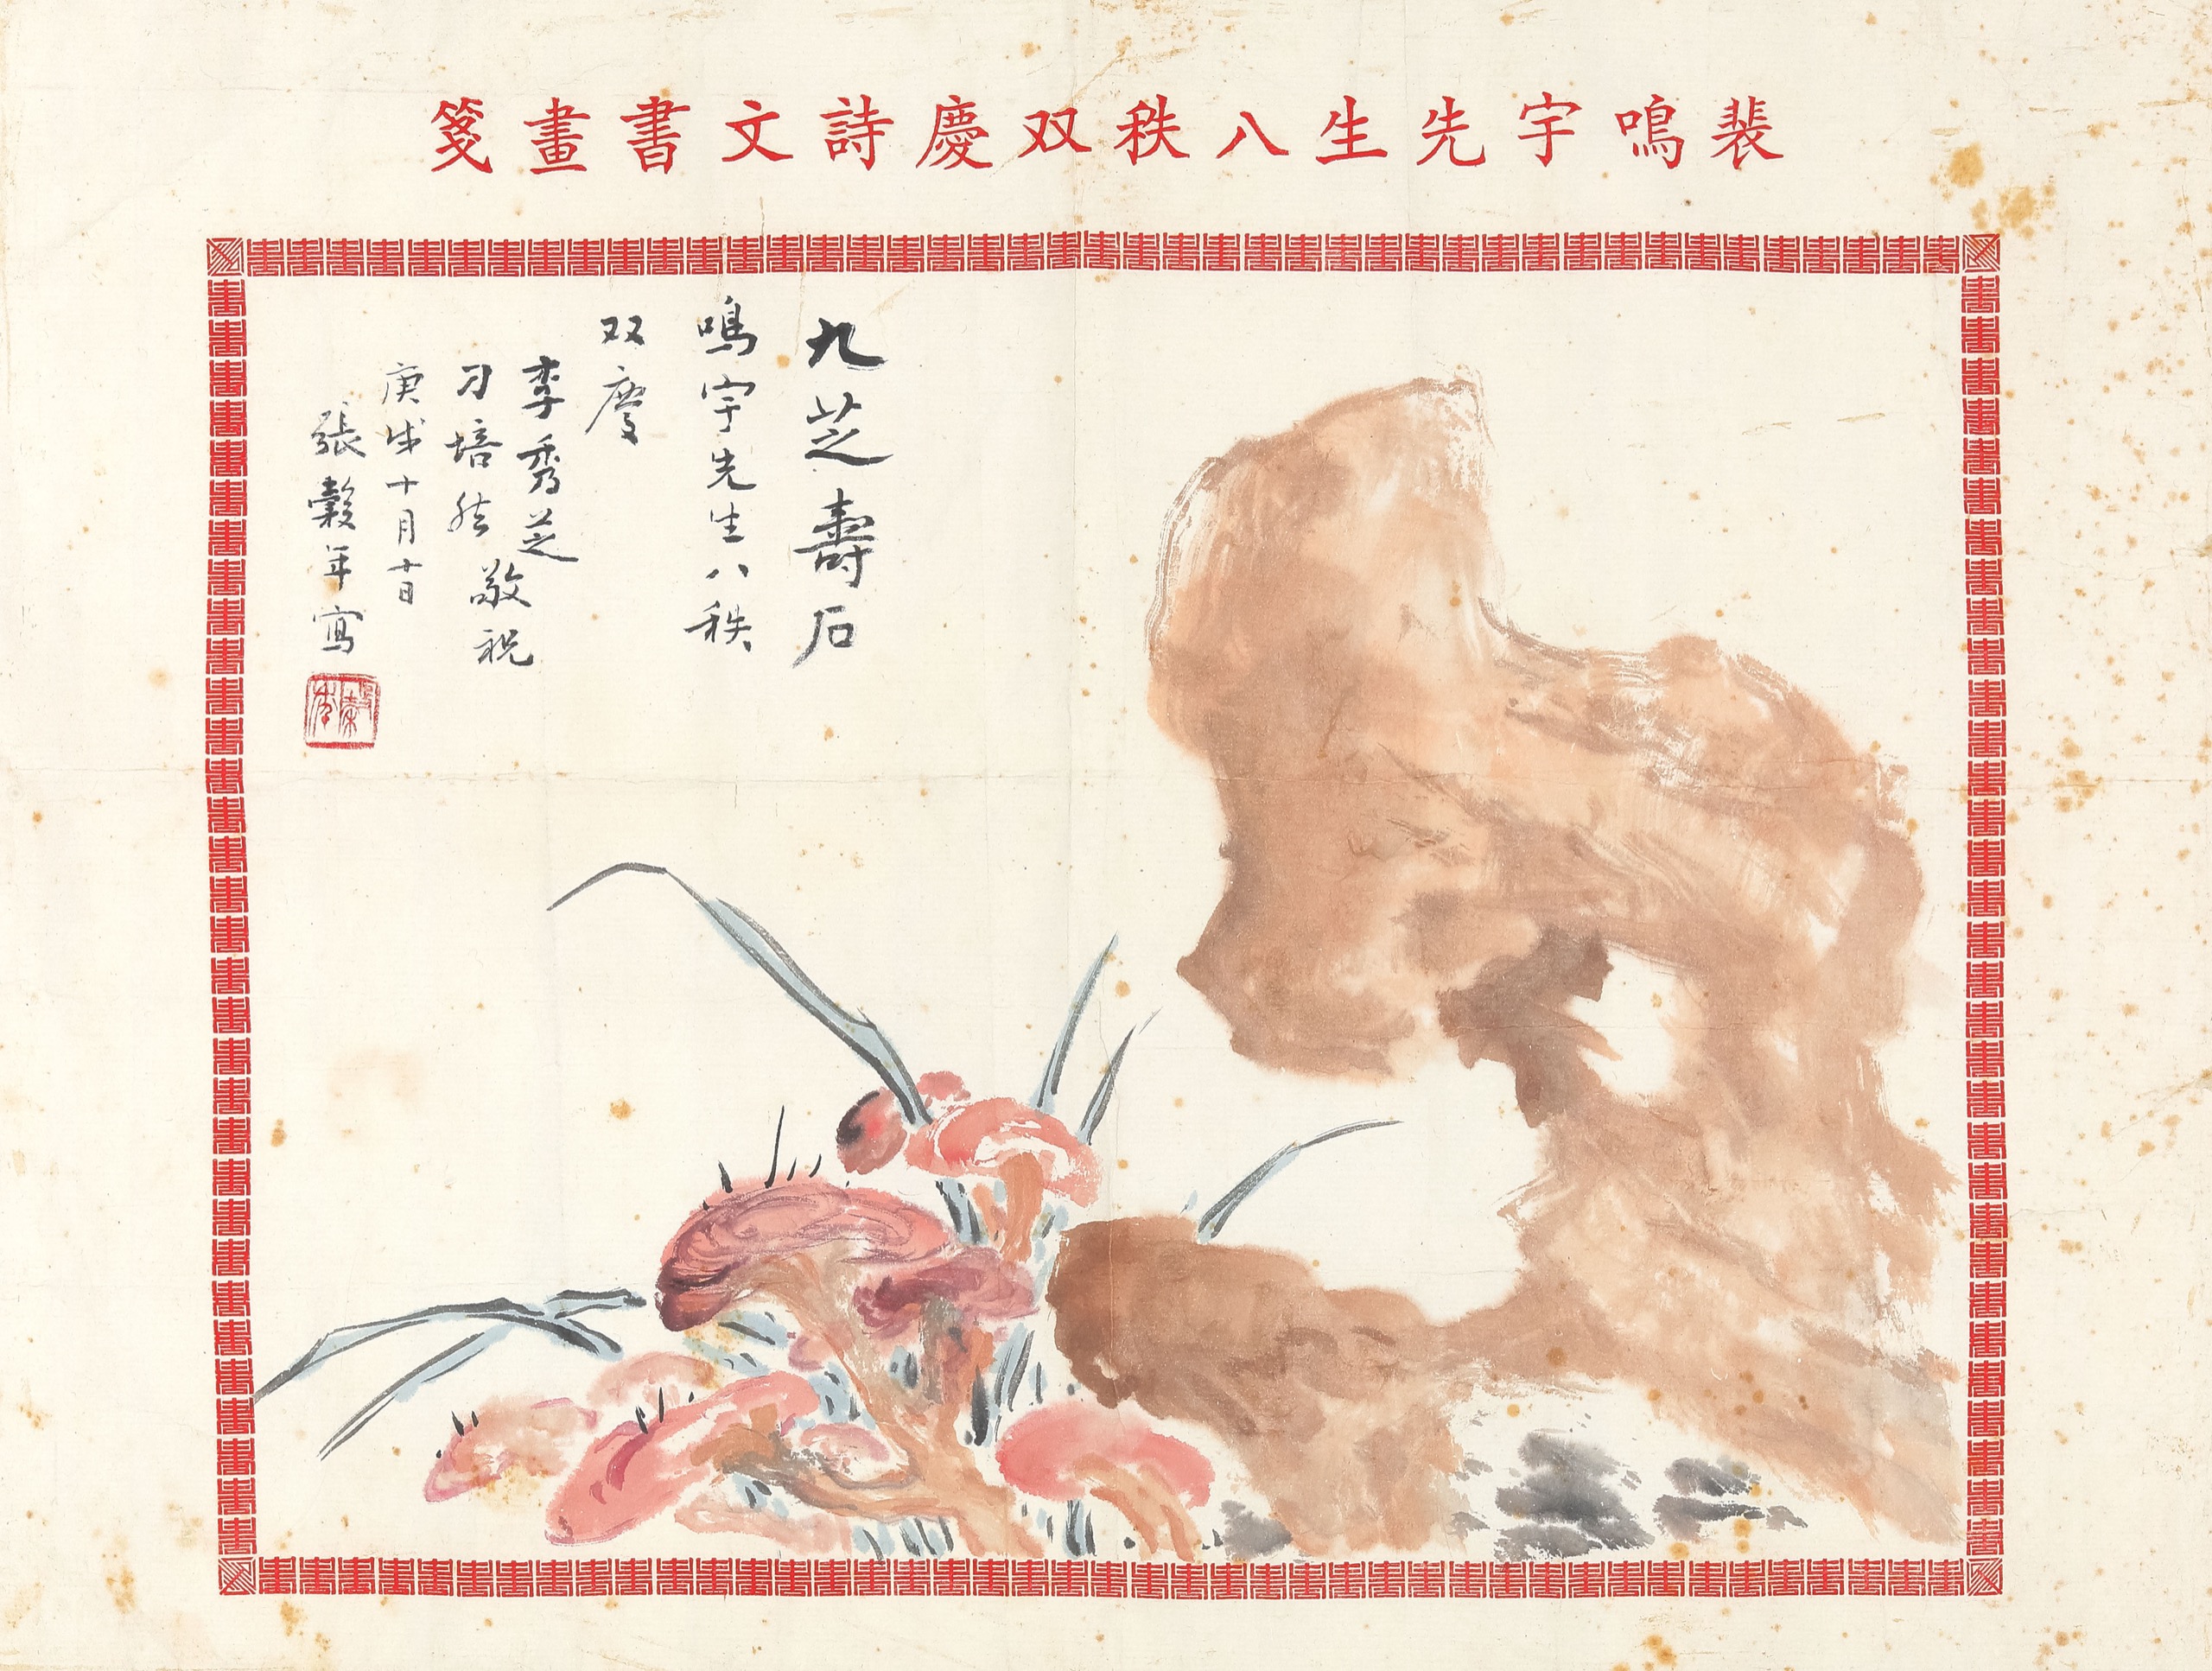 裴鳴宇先生八秩双慶詩文書畫箋
九芝壽石
鳴宇先生八秩
双慶
李秀芝
刁培然
敬祝
庚戌十月十日
張穀年寫